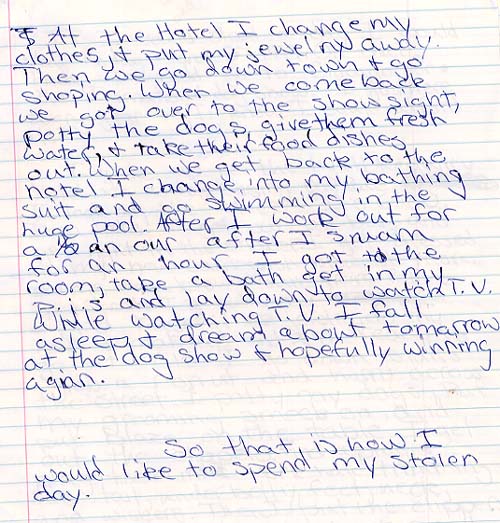 ¶ At the Hotel I change my
clothes, & put my jewelry away.
Then we go down town & go
shoping. When we come back
we got over to the showsight,
potty the dogs, give them fresh
water, & take their food dishes
out. When we get back to the
hotel I change into my bathing
suit and go swimming in the
huge pool. After I work out for
a ½ an our after I swam
for an hour I got to the
room, take a bath get in my
and lay down to watch T.V.
While watching T.V. I fall
asleep & dream about tomarrow
at the dog show & hopefully winning
agian.
So that, is how I
would like to spend my stolen
day.